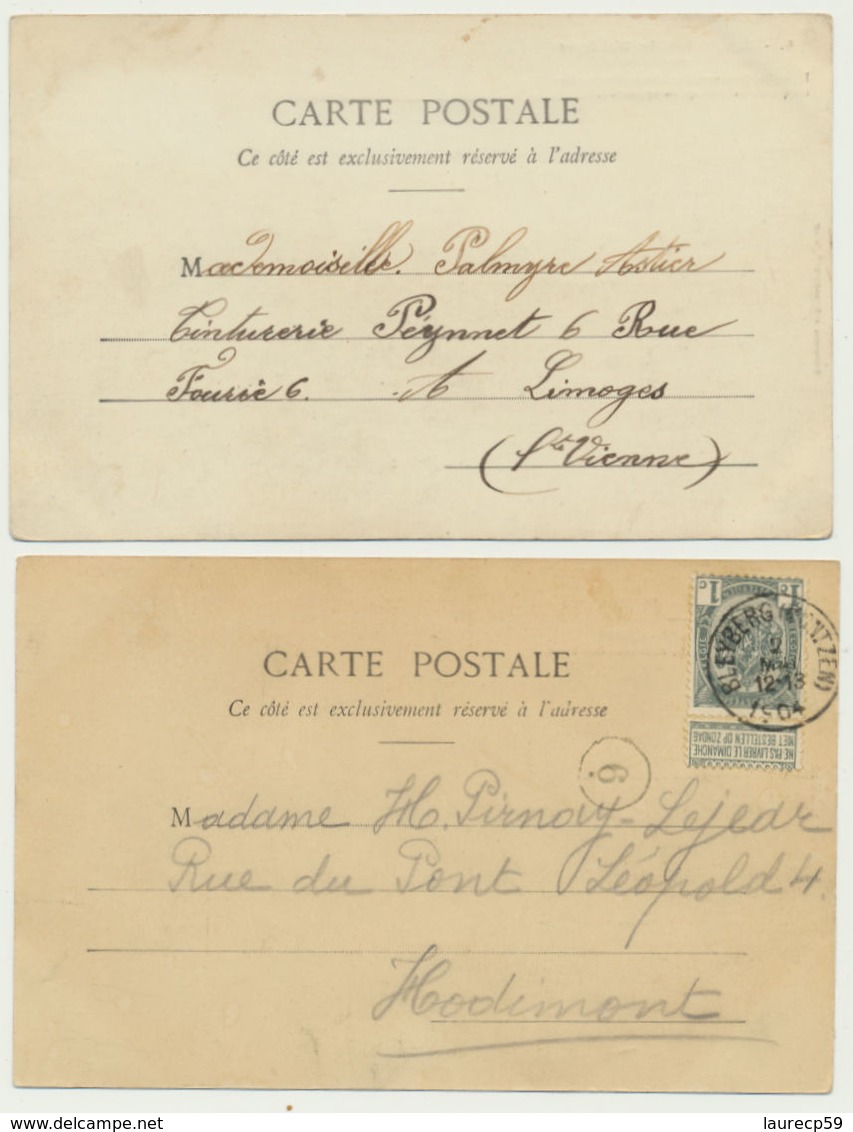 CARTE POSTALE
Ce côté est exclusivement réservé à l'adresse
Mademoiselle. Palmyre Astier
Tinturerie Péynnet 6 Rue
Fourié 6. A Limoges
(Hte Vienne)
CARTE POSTALE
Ce côté est exclusivement réservé à l'adresse
1c 1c
BLEYBERG (MONTZEN)
12-13
1904
NE PAS LIVRER LE DIMANCHE
NIET BESTELLEN OP ZONDAG
6
Madame H. Pirnay-Lejear
Rue du Pont Léopold 4.
Hodimont
delcampe.net
laurecp59